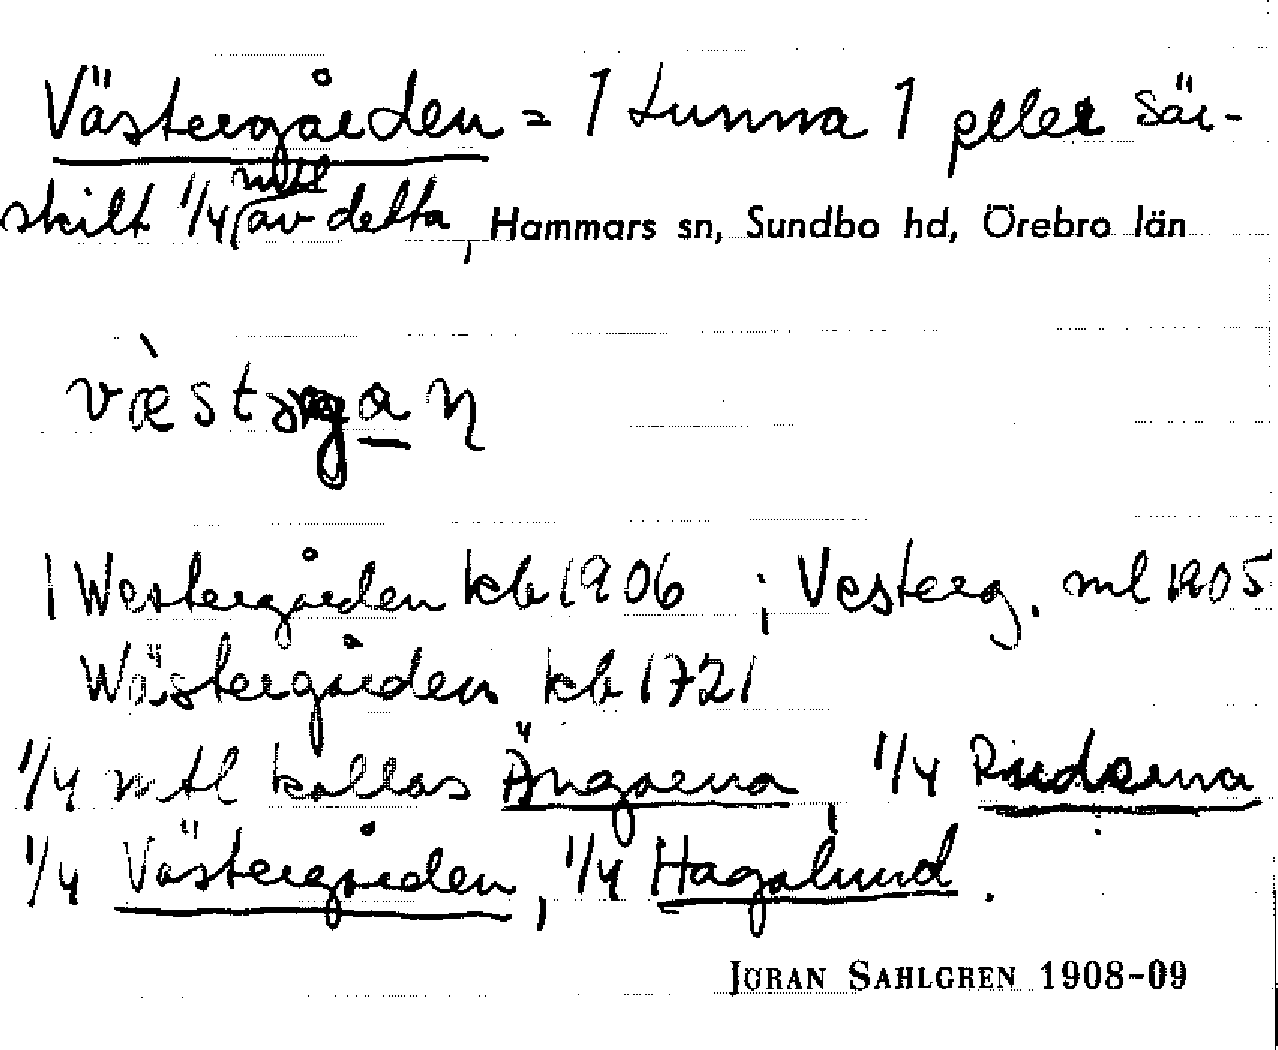 Västergården = 1 tunna 1 eller sär-
skilt 1/4 mtl av detta, Hammars sn, Sundbo hd, Örebro län
1 Westergården kb 1906 ; Vesterg. ml 1905
Wästergården kb 1721
1/4 mtl kallas Ängarna, 1/4 Ruderna
1/4 Västergården, 1/4 Hagalund.
JÖRAN SAHLGREN 1908-09